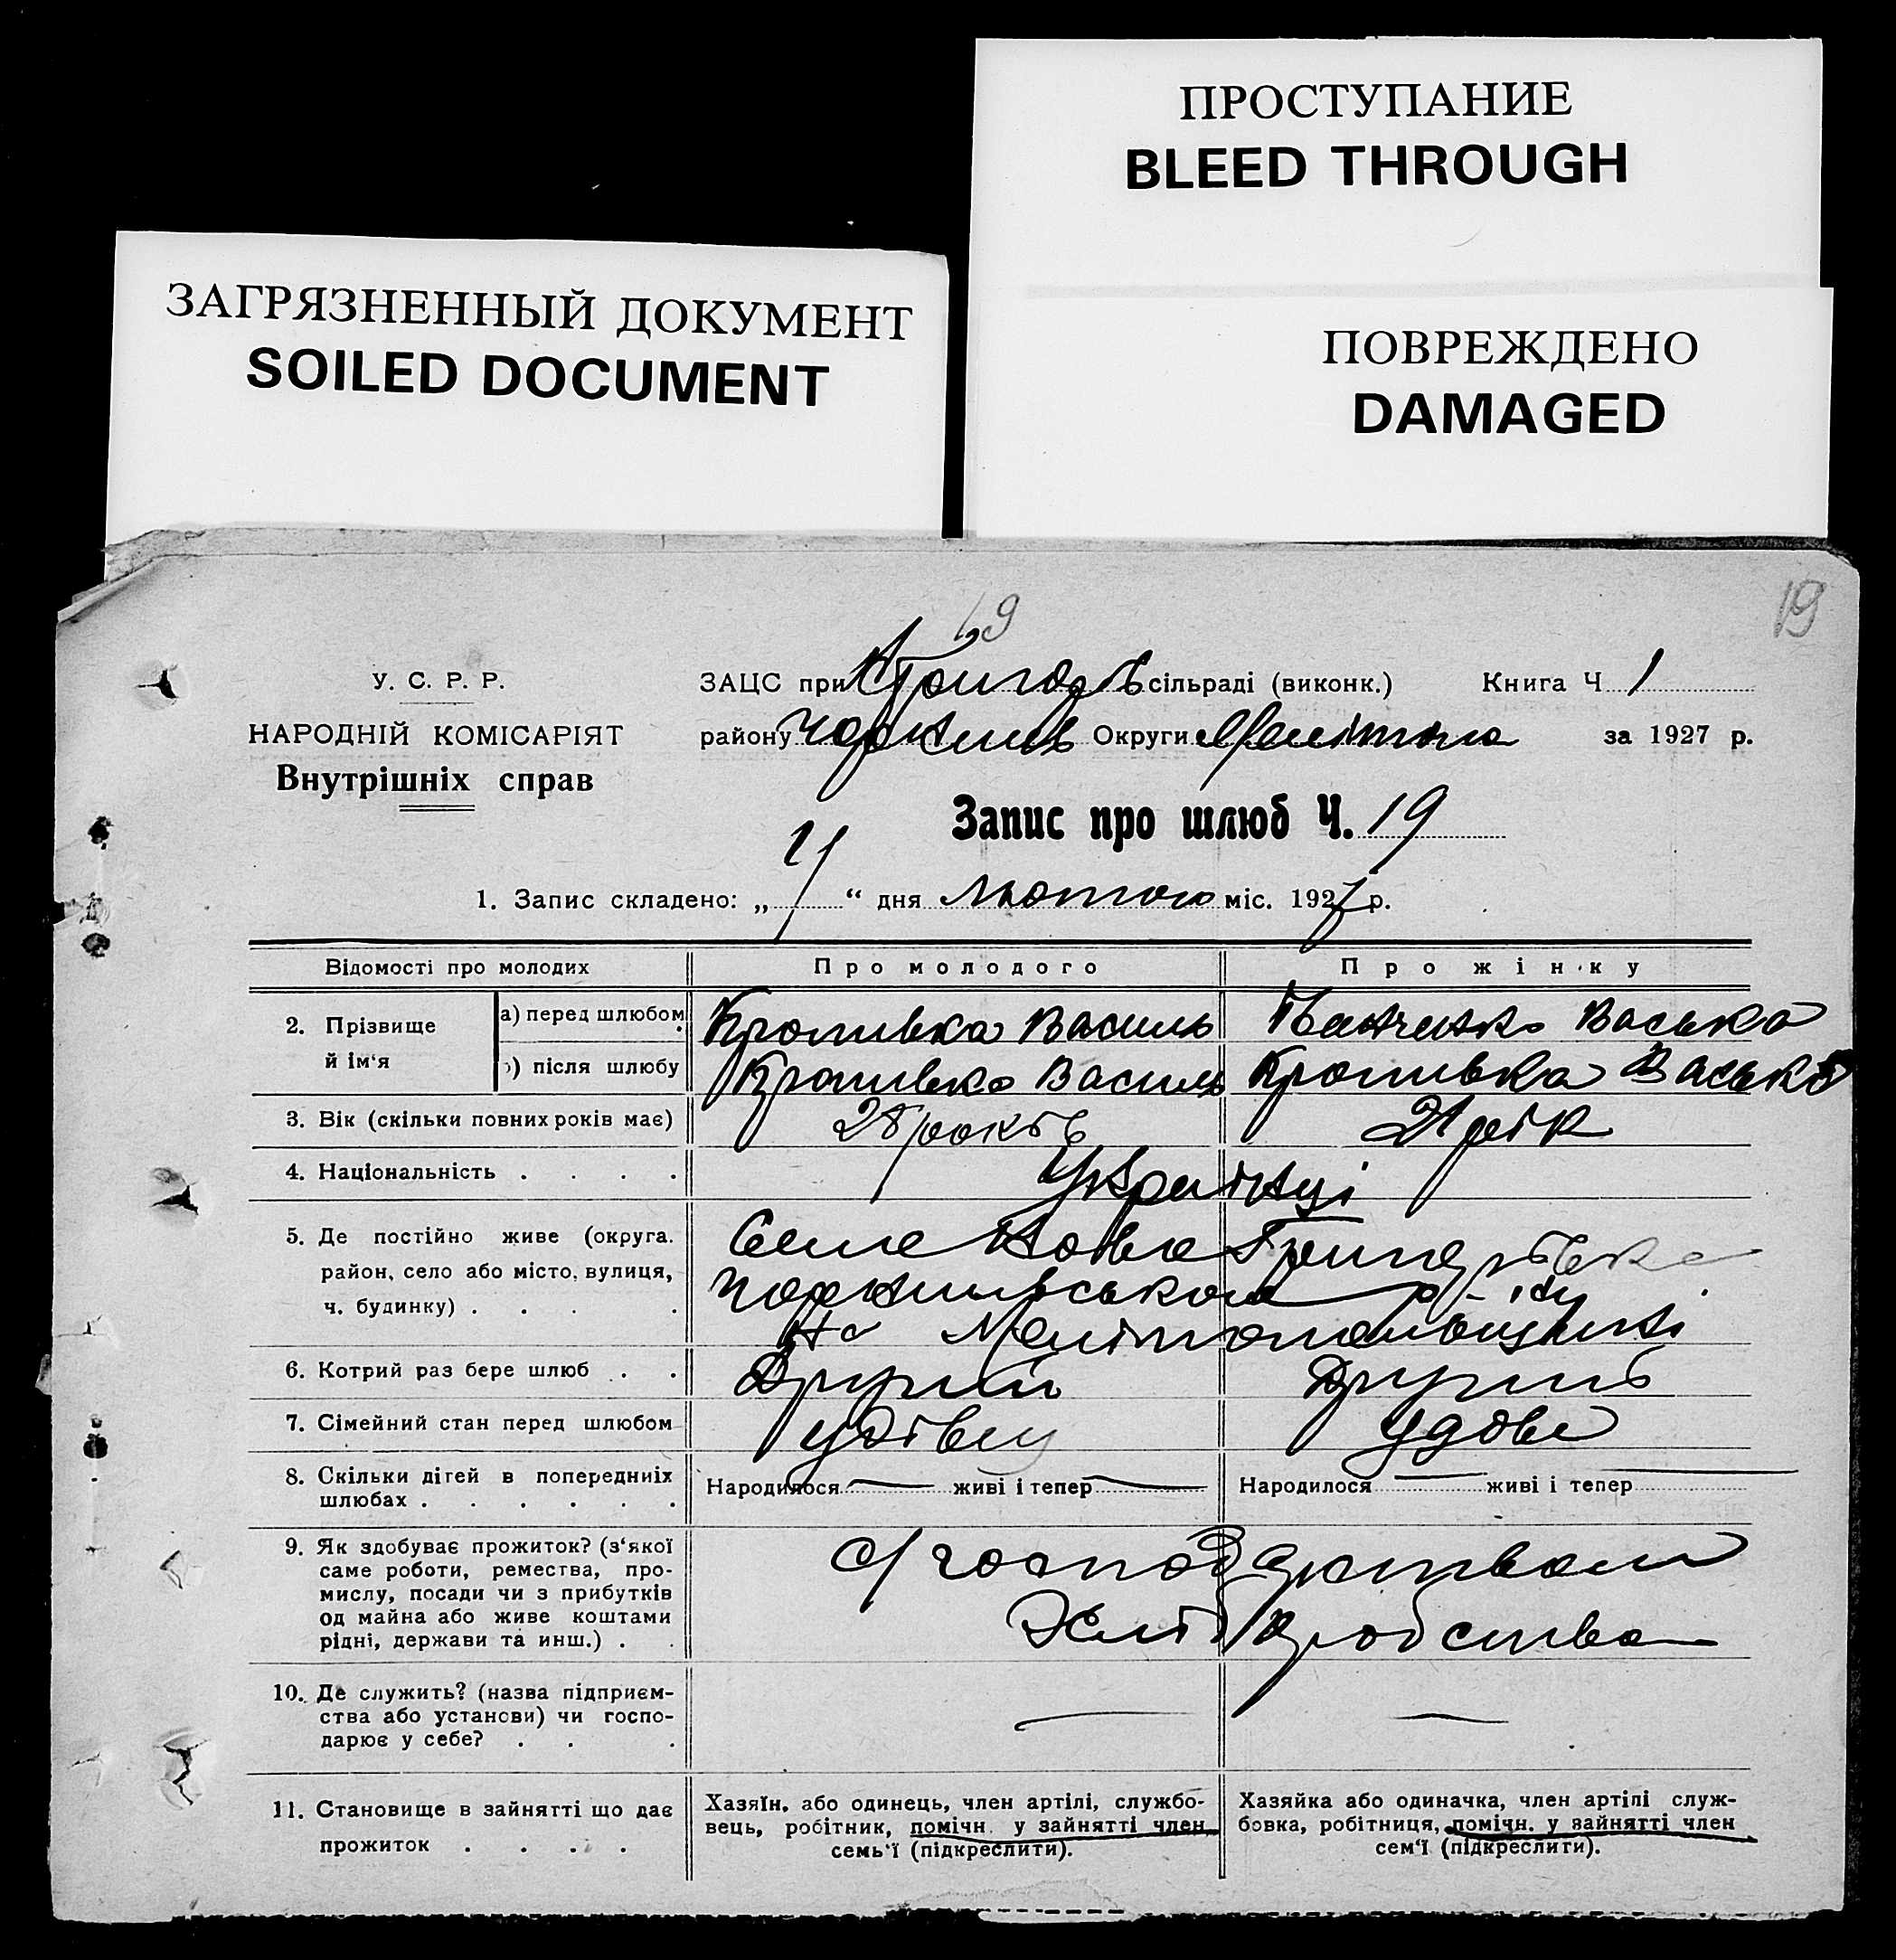 ПРОСТУПАНИЕ
BLEED THROUGH
ЗАГРЯЗНЕННЫЙ ДОКУМЕНТ
SOILED DOCUMENT
ПОВРЕЖДЕНО
DAMAGED
19
19
У. С. Р. Р.
НАРОДНІЙ КОМІСАРІЯТ
Внутрішніх справ
ЗАЦС при сільраді (виконк.) Книга Ч. 1
району Округи за 1927 р.
Запис про шлюб Ч. 19
1. Запис складено: „ “ дня Лютого міс. 1927 р.
Відомості про молодих Про молодого Про жінку
2. Прізвище й ім‘я
а) перед шлюбом Кропивка Василь Васька
б) після шлюбу Кропивка Василь Кропивка Васька
3. Вік (скільки повних років має) 28 років 21 рік
4. Національність . . . . Українці
5. Де постійно живе (округа. Село Ново
район, село або місто, вулиця, р-ну
ч. будинку) . . . . На Мелітопольщині
6. Котрий раз бере шлюб . . Другий Другий
7. Сімейний стан перед шлюбом удівец удова
8. Скільки дітей в попередниіх
шлюбах . . . . . .
Народилося — живі і тепер — Народилося — живі і тепер —
9. Як здобуває прожиток? (з‘якої
саме роботи, ремества, про-
мислу, посади чи з прибутків
од майна або живе коштами
рідні, держави та инш.) . .
с/господарством
10. Де служить? (назва підприєм-
ства або установи) чи госпо-
дарює у себе? . . .
— —
11. Становище в зайнятті що дає
прожиток . . . .
Хазяїн, або одинець, член артілі, службо-
вець, робітник, помічн. у зайнятті член
семь‘ї (підкреслити).
Хазяйка або одиначка, член артілі служ-
бовка, робітниця, помічн. у зайнятті член
сем‘ї (підкреслити).